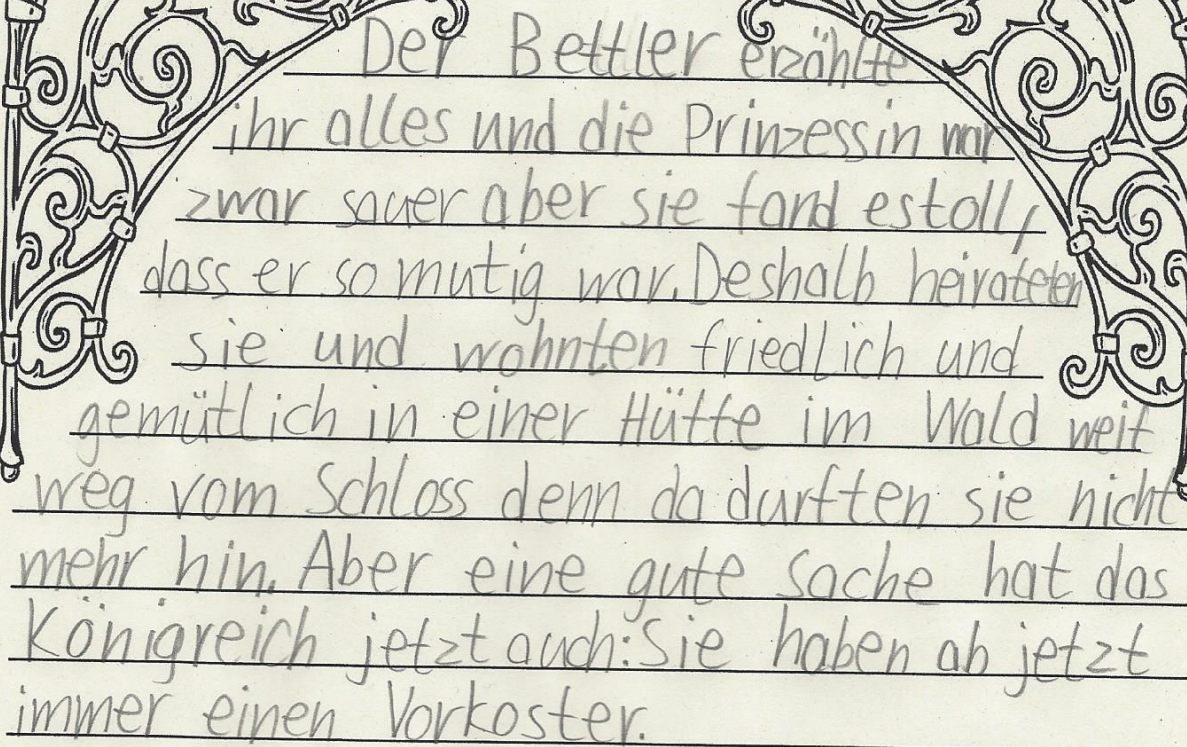 Der Bettler erzählte
ihr alles und die Prinzessin war
zwar sauer aber sie fand es toll,
dass er so mutig war. Deshalb heirateten
sie und wohnten friedlich und
gemütlich in einer Hütte im Wald weit
weg vom Schloss denn da durften sie nicht
mehr hin. Aber eine gute Sache hat das
Königreich jetzt auch: Sie haben ab jetzt
immer einen Vorkoster.